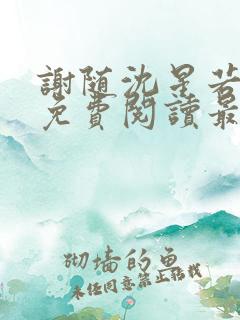 謝随沈星若
免費閱讀最
砌墙的鱼
未经同意禁止转载